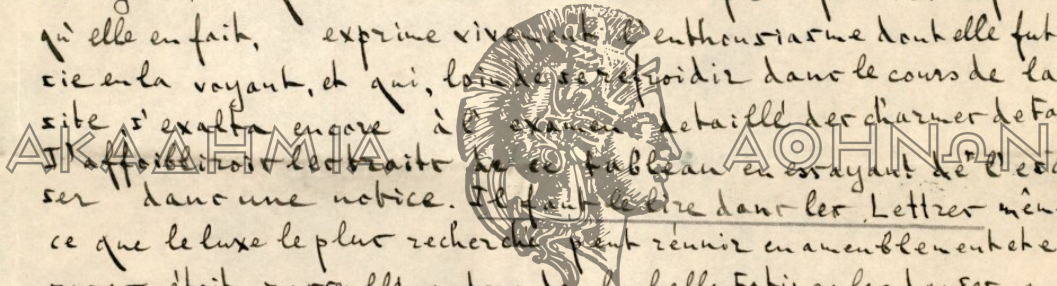 qu'elle en fait, exprime vivement l'enthousiasme dont elle fut
sie en la voyant, et qui, loin de se refroidir dans le cours de la
site s'exalta encore à l'examen detaillé des charmes de ta
ΑΚΑΔΗΜΙΑ ΑΘΗΝΩΝ
J'affoiblirois les traits de ce tableau en essayant de l'es
ser dans une notice. Il faut le lire dans les Lettres mêm
ce que le luxe le plus recherché peut réunir en ameublement et e